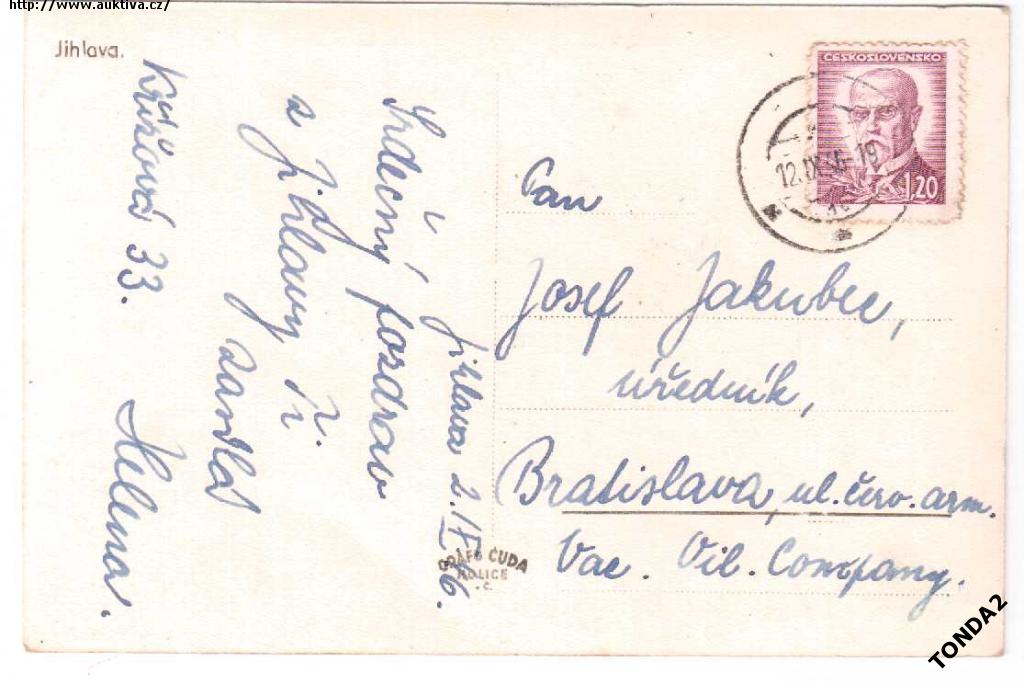 http://www.auktiva.cz/
Jihlava.
ČESKOSLOVENSKO
1.20
12.IX.46-19
Jihlava 2.IX.46.
Srdečný pozdrav
z Jihlavy Ti
zasílá
Helena.
Křížová 33.
Pan
Josef Jakubec,
úředník,
Bratislava, ul. červ. arm.
Vac. Oil. Company.
GRAFO ČUDA
HOLICE
TONDA2